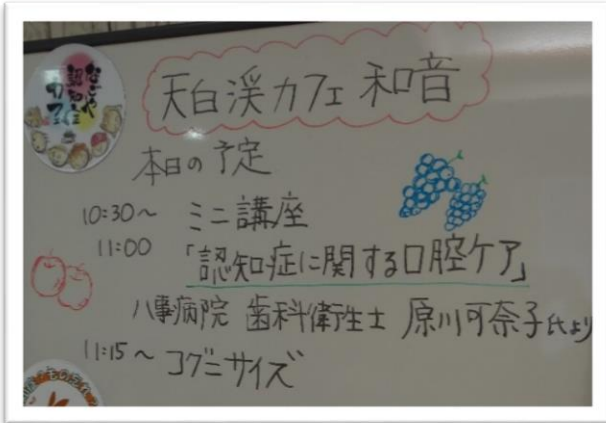 なごや
認知症
カフェ
天白渓カフェ 和音
本日の予定
10:30～ ミニ講座
11:00 「認知症に関する口腔ケア」
八事病院 歯科衛生士 原川可奈子氏より
11:15～ コグニサイズ